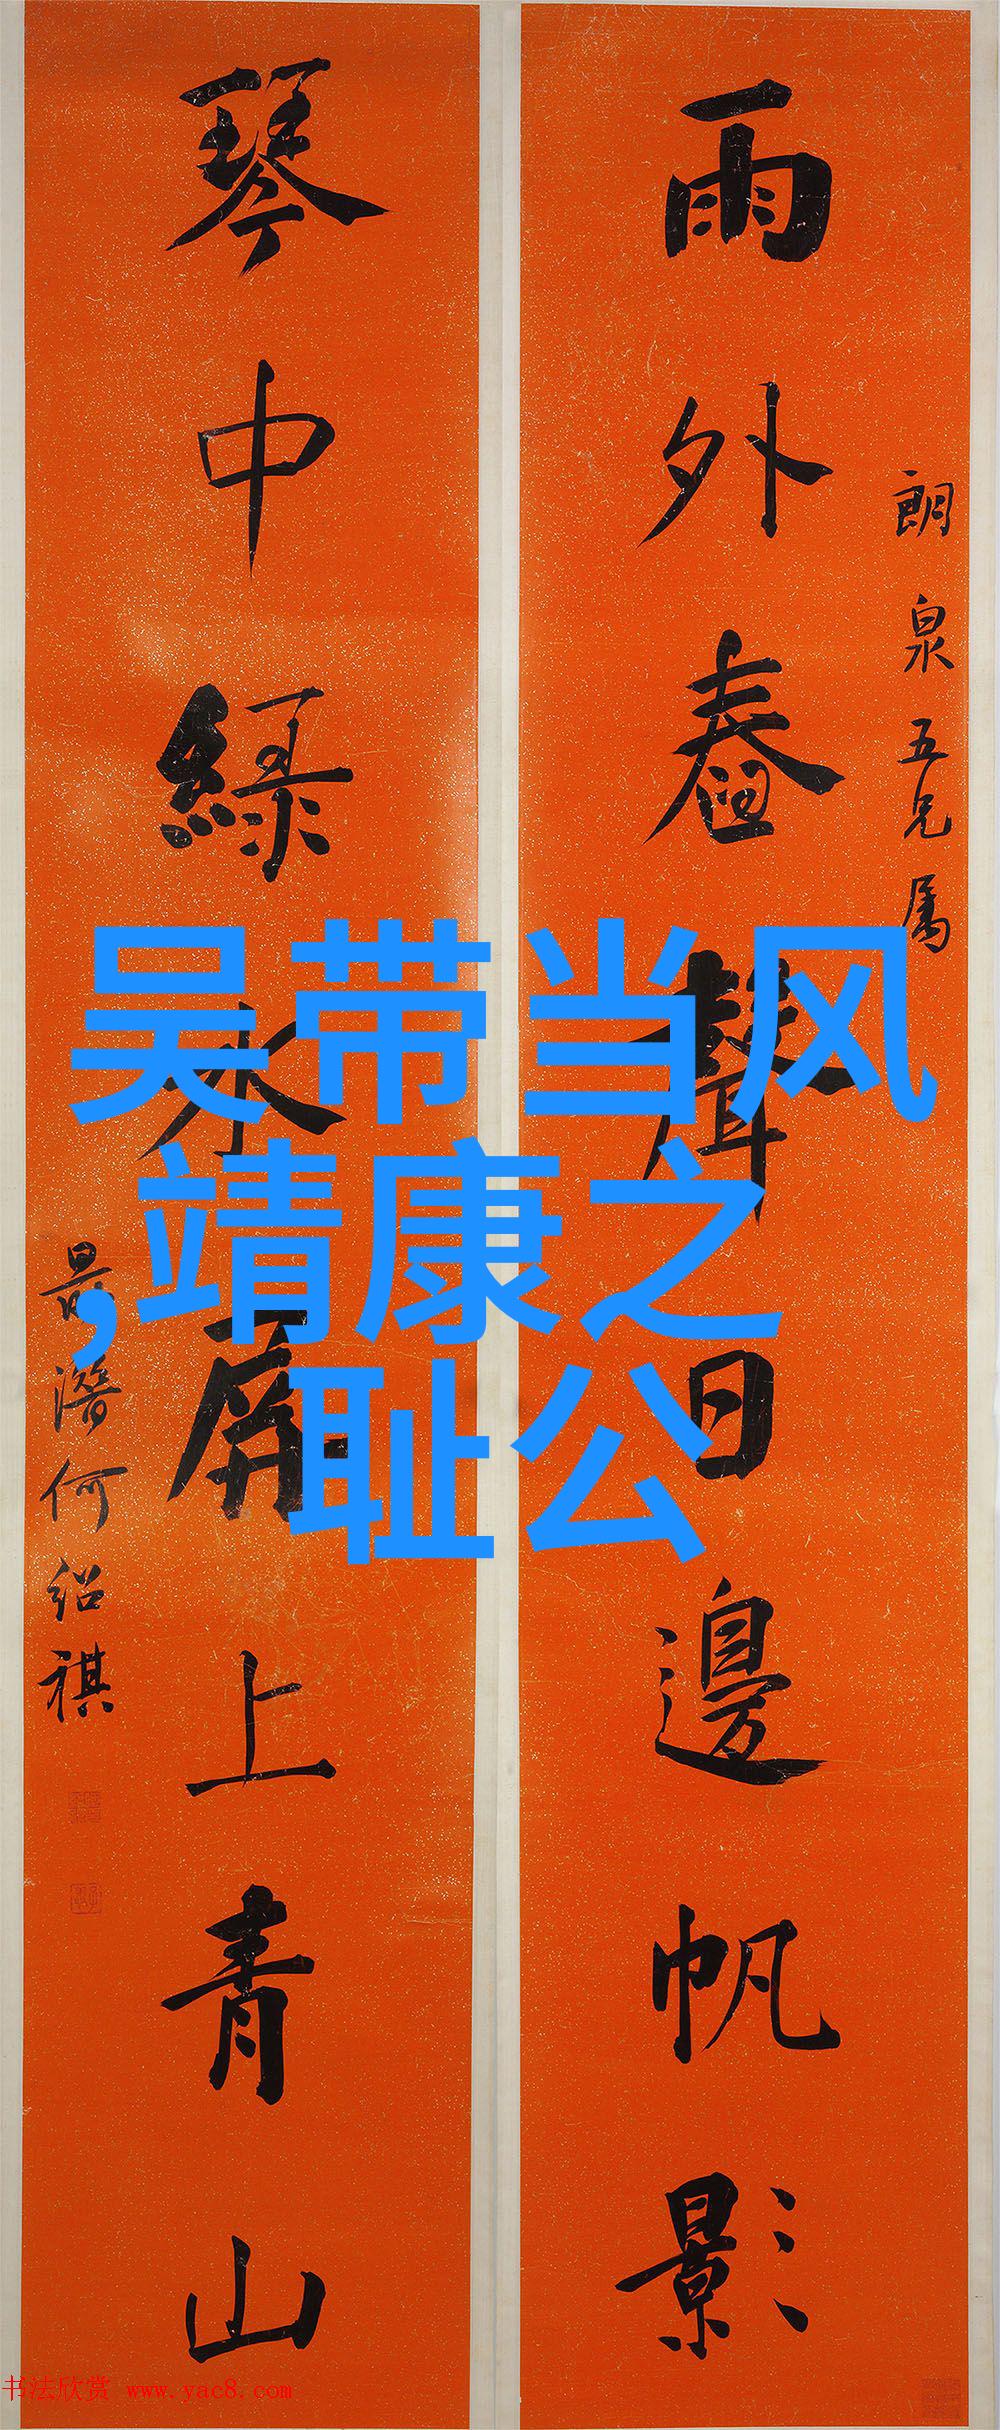 朗泉五兄属
雨外舂聲日邊帆影
琴中綠水屏上青山
勗潛何紹祺
吴带当风
,靖康之
耻公
书法欣赏 www.yac8.com